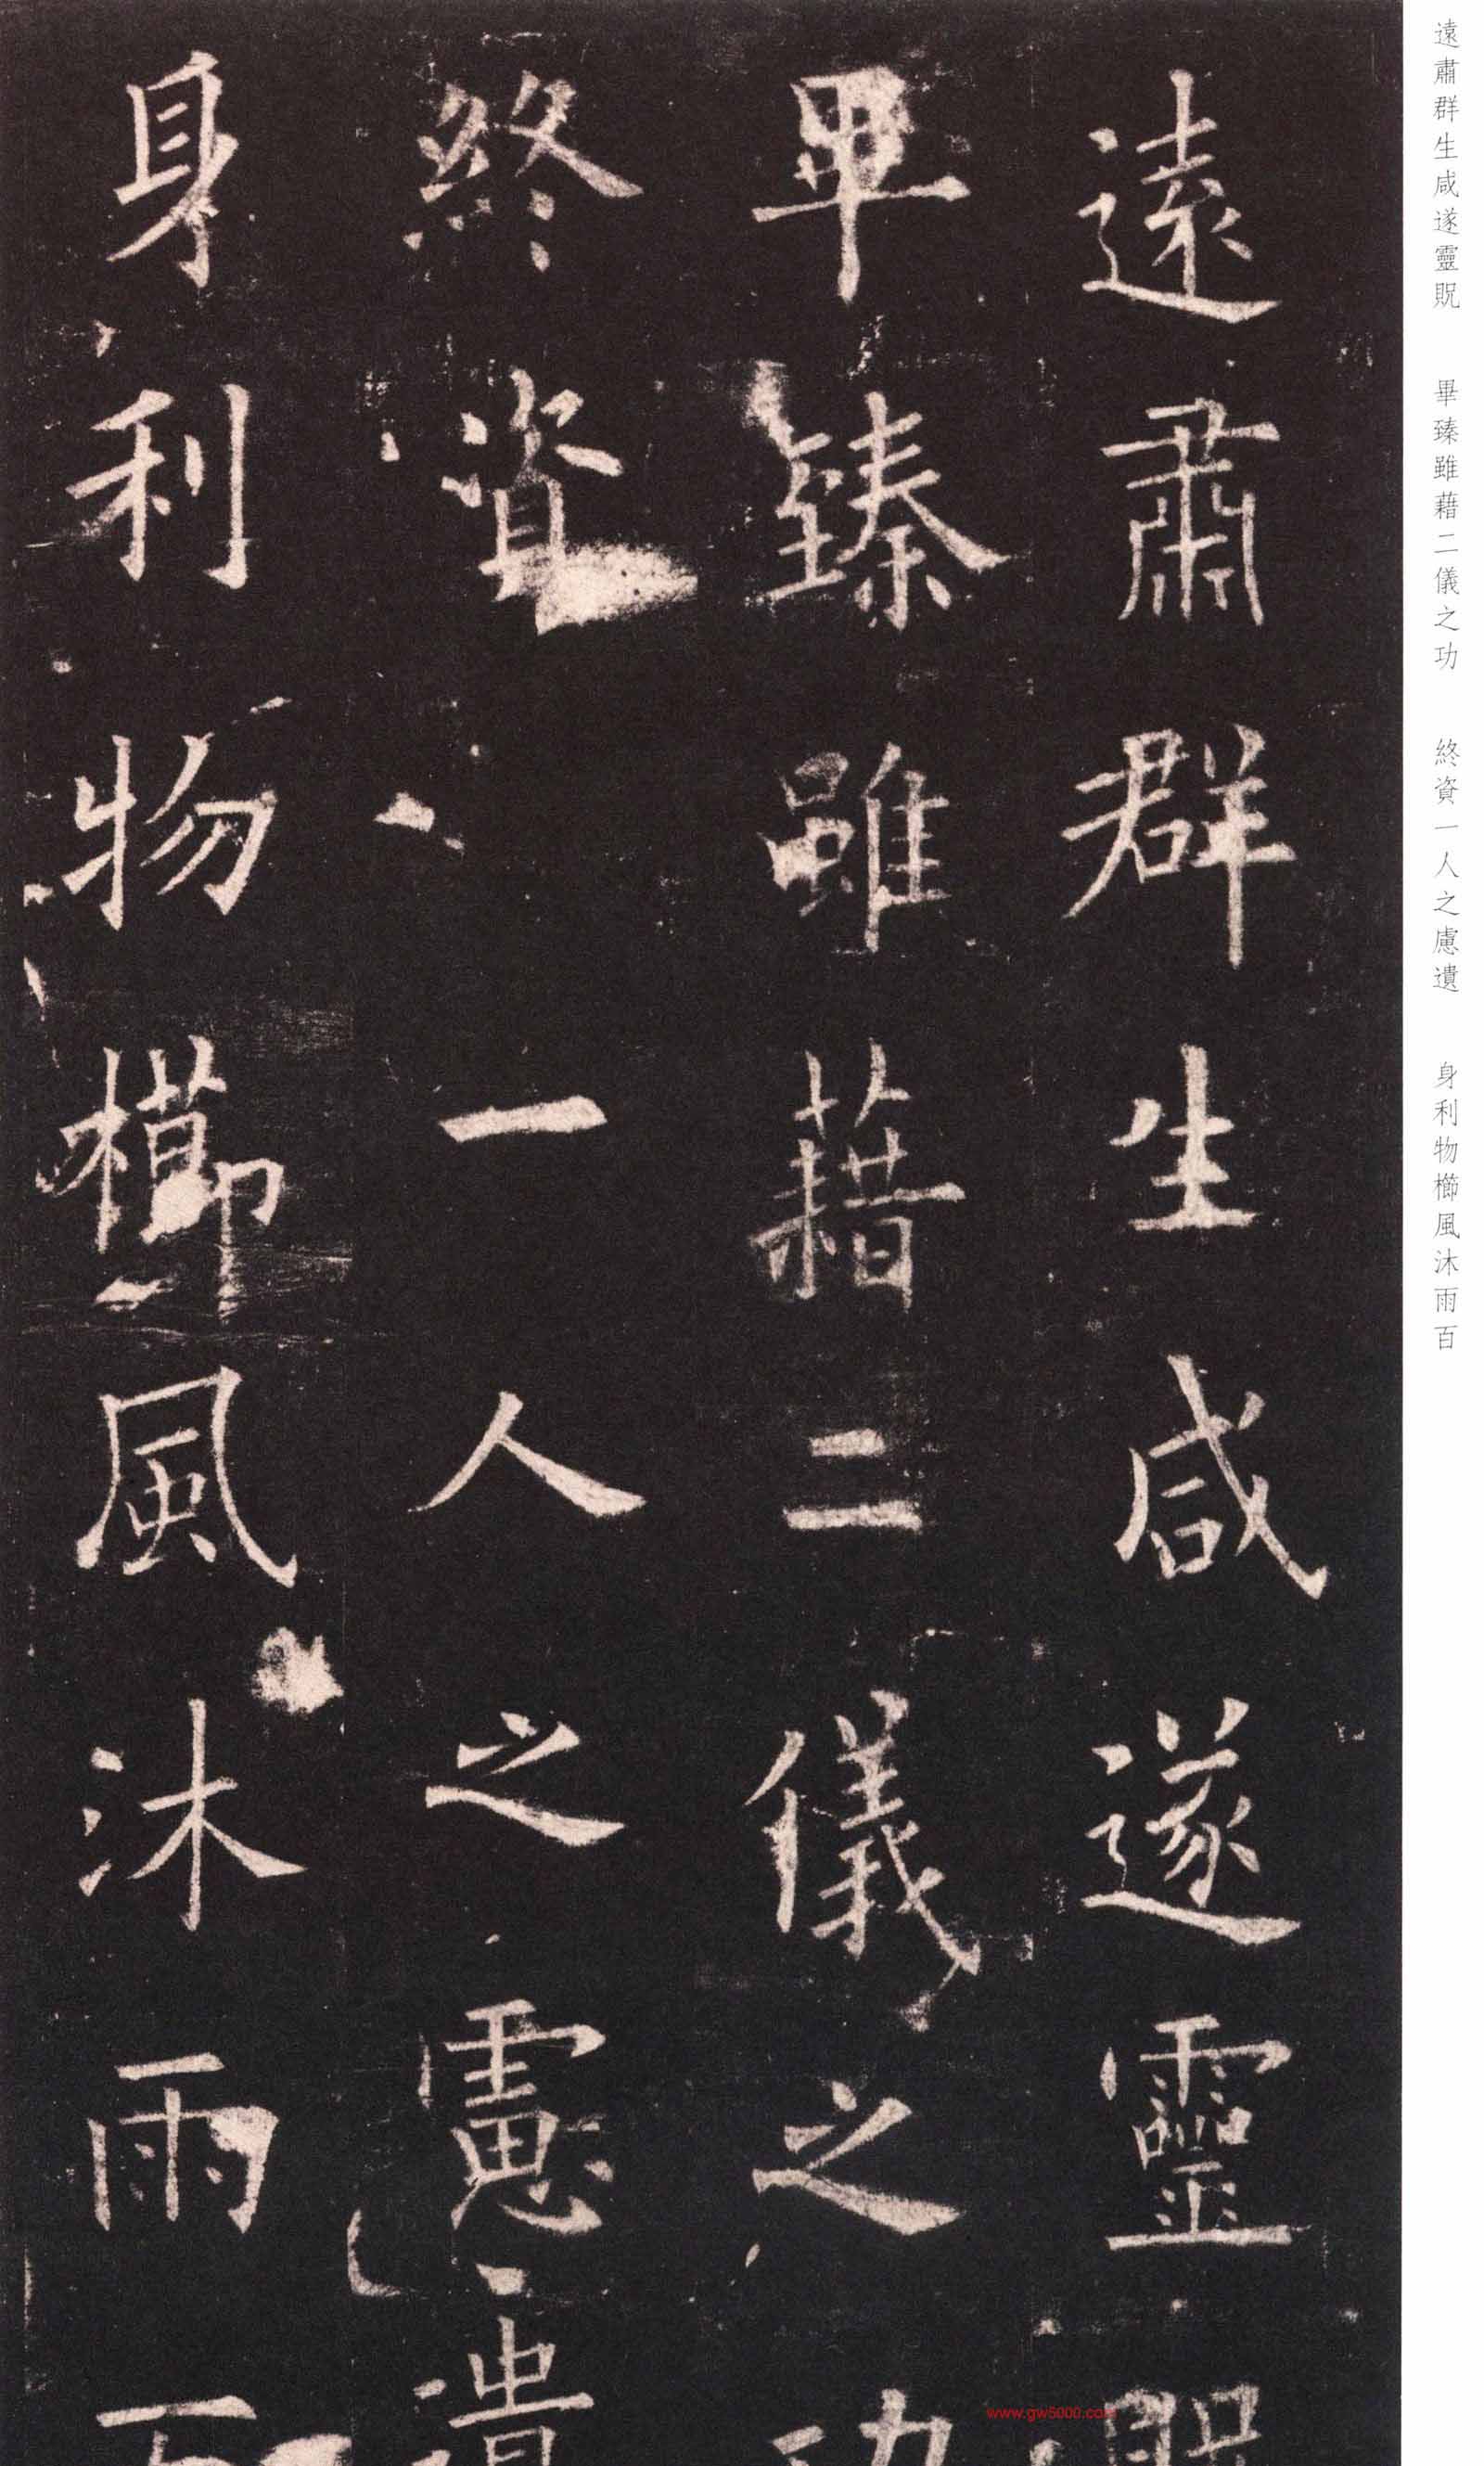 遠肅群生咸遂靈貺
畢臻雖藉二儀之功
終資一人之慮遺
身利物櫛風沐雨百
遠肅群生咸遂靈貺 畢臻雖藉二儀之功 終資一人之慮遺 身利物櫛風沐雨百
www.gw5000.com